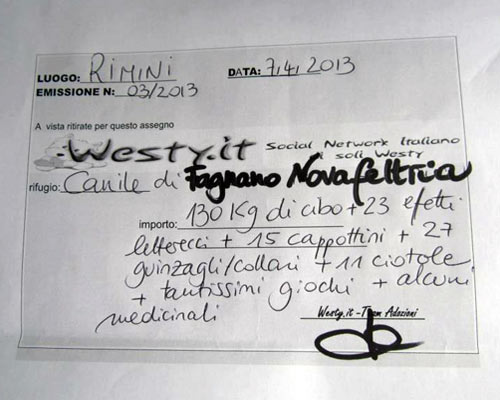 LUOGO: RIMINI DATA: 7/4/2013
EMISSIONE N: 03/2013
A vista ritirate per questo assegno
Westy.it Social Network Italiano
i soli Westy
rifugio: Canile di Fagnano Novafeltria
importo: 130 Kg di cibo + 23 effetti
letterecci + 15 cappottini + 27
guinzagli/collari + 11 ciotole
+ tantissimi giochi + alcuni
medicinali
Westy.it - Team Adozioni